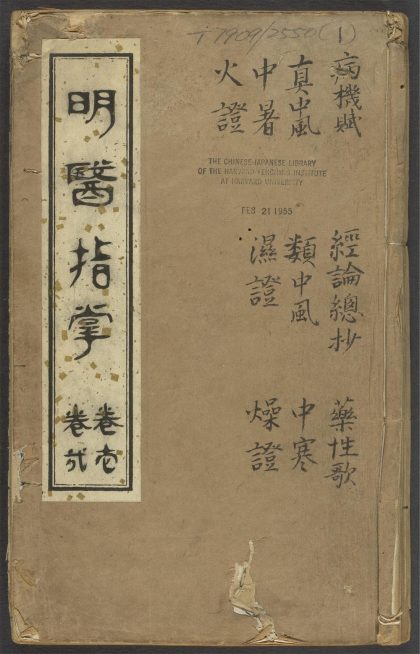 T 7909/2550 (1)
明醫指掌
卷壱
卷弐
病機賦 經論總抄 藥性歌
真中風 類中風 中寒
中暑 濕證 燥證
火證
THE CHINESE-JAPANESE LIBRARY
OF THE HARVARD-YENCHING INSTITUTE
AT HARVARD UNIVERSITY
FEB 21 1955